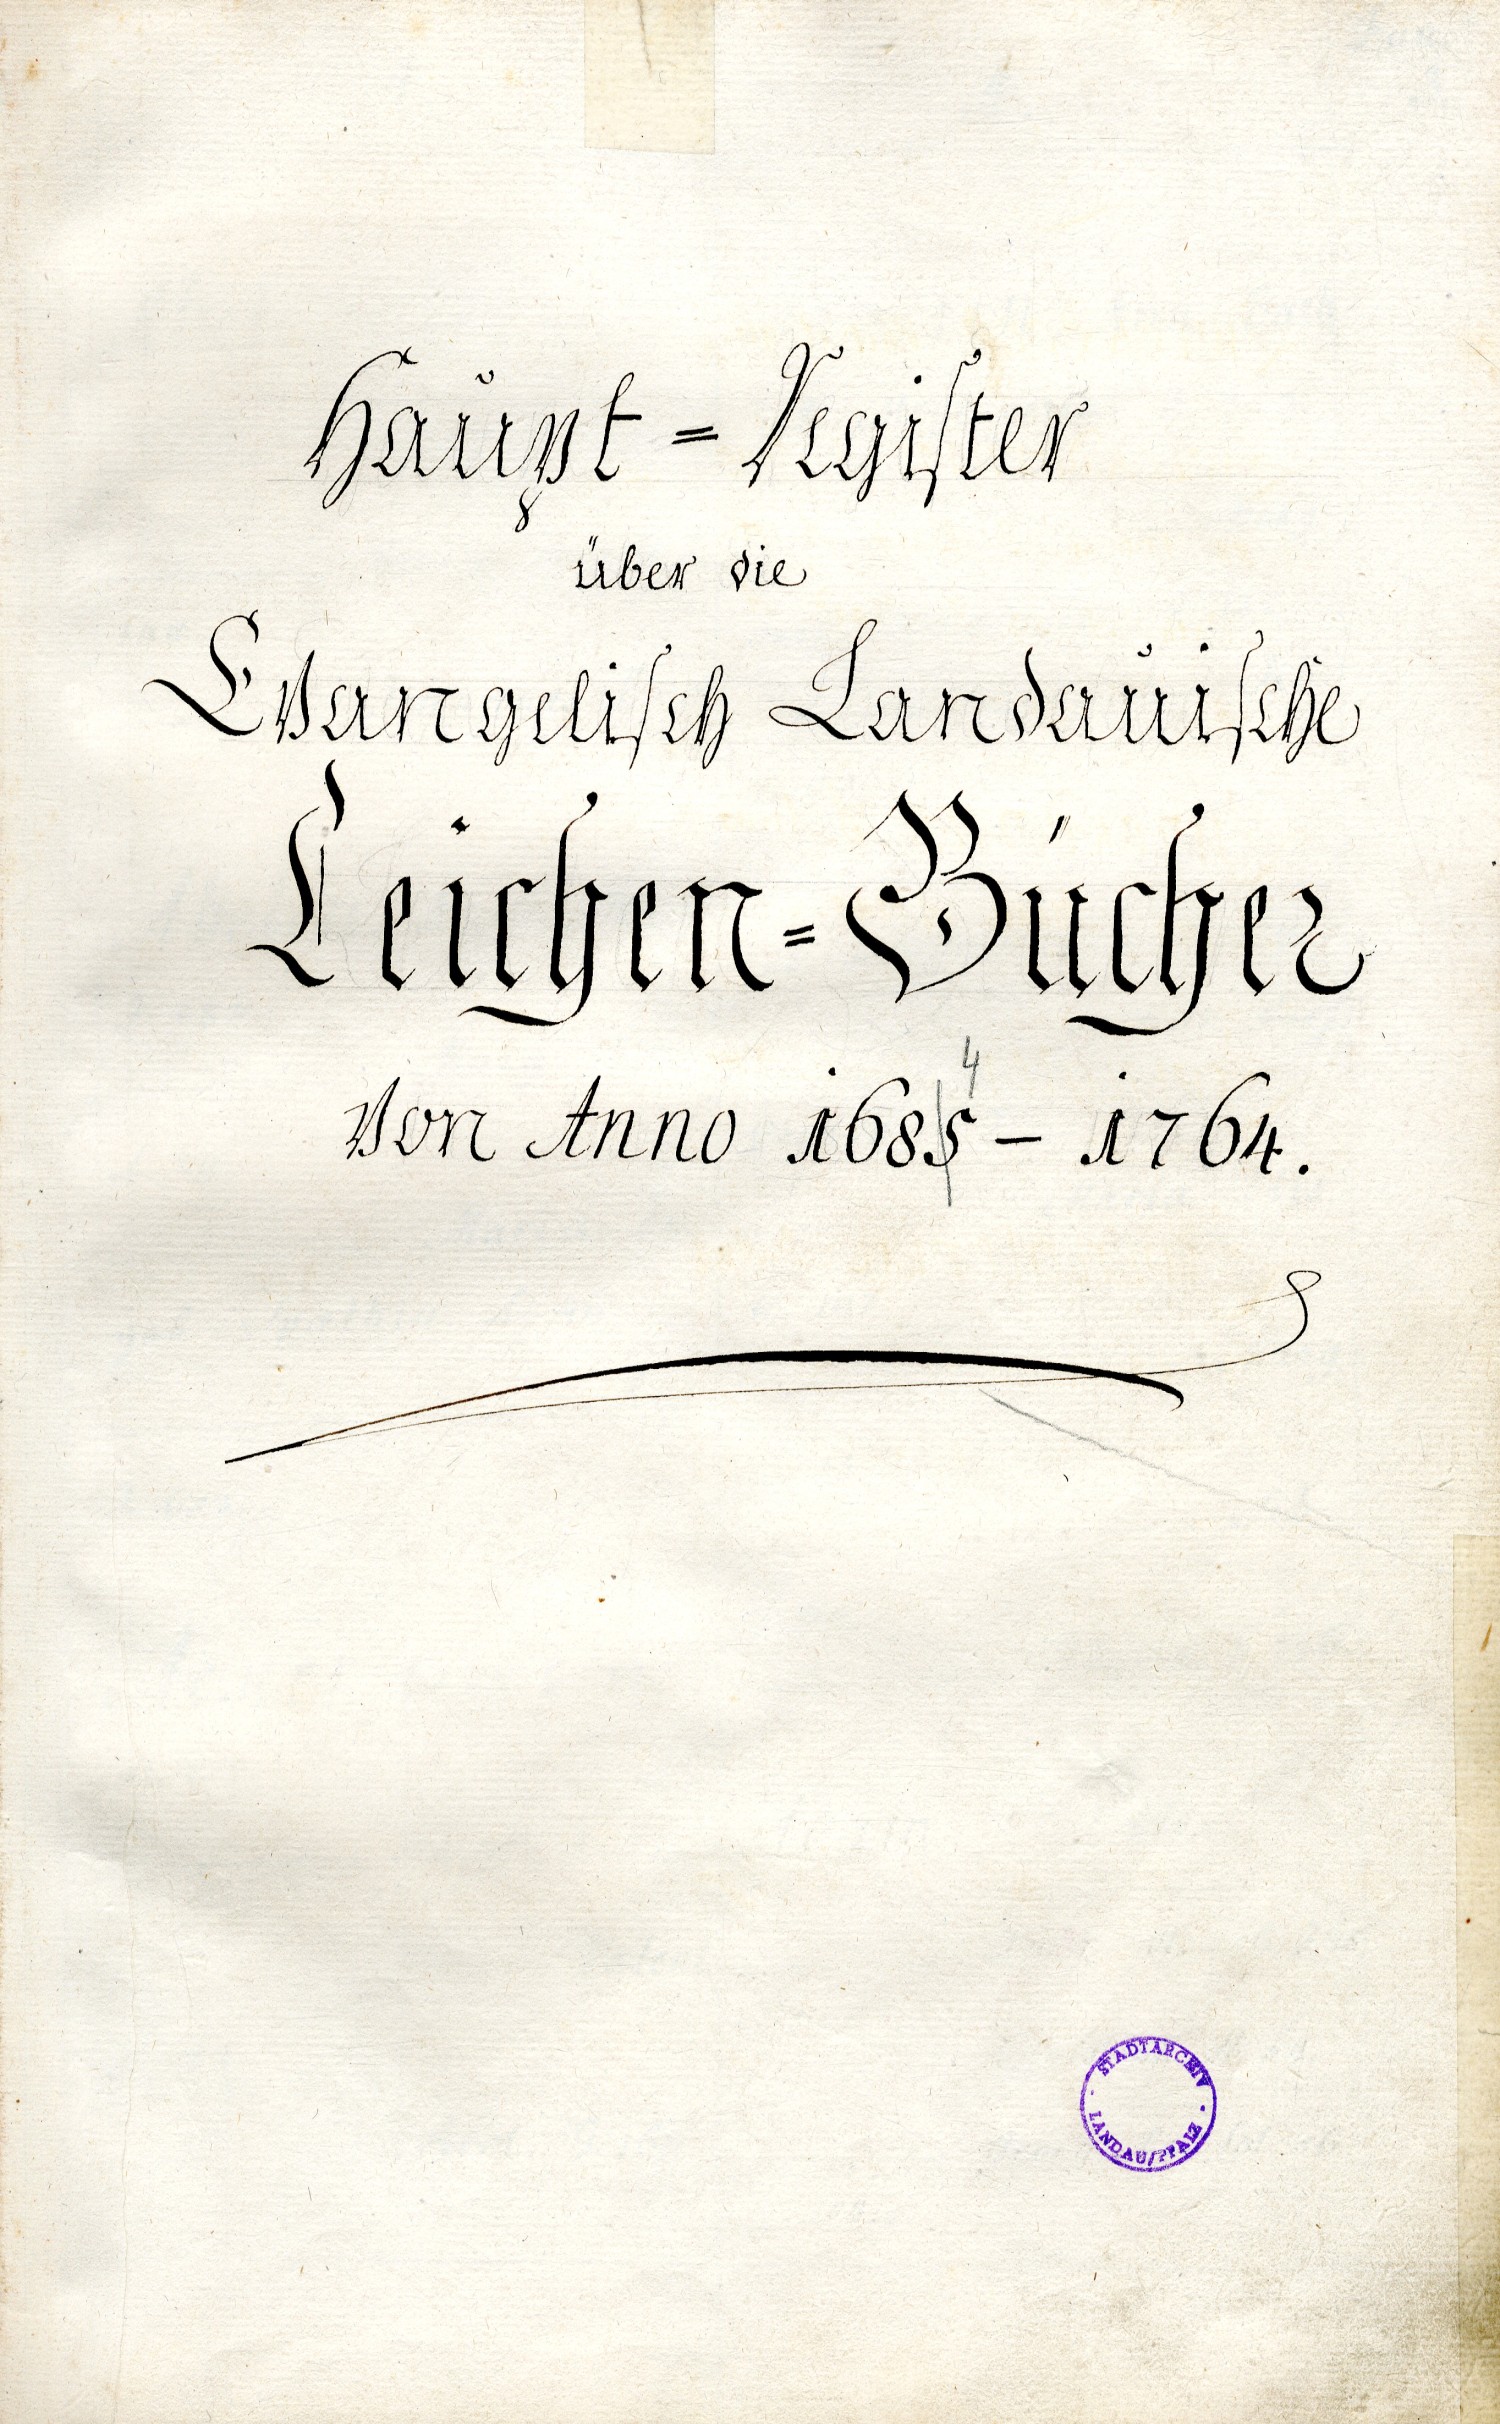 Haupt = Register
über die
Evangelisch Landauische
Leichen = Bücher
4
von Anno 1685 – 1764.
STADTARCHIV
LANDAU/PFALZ